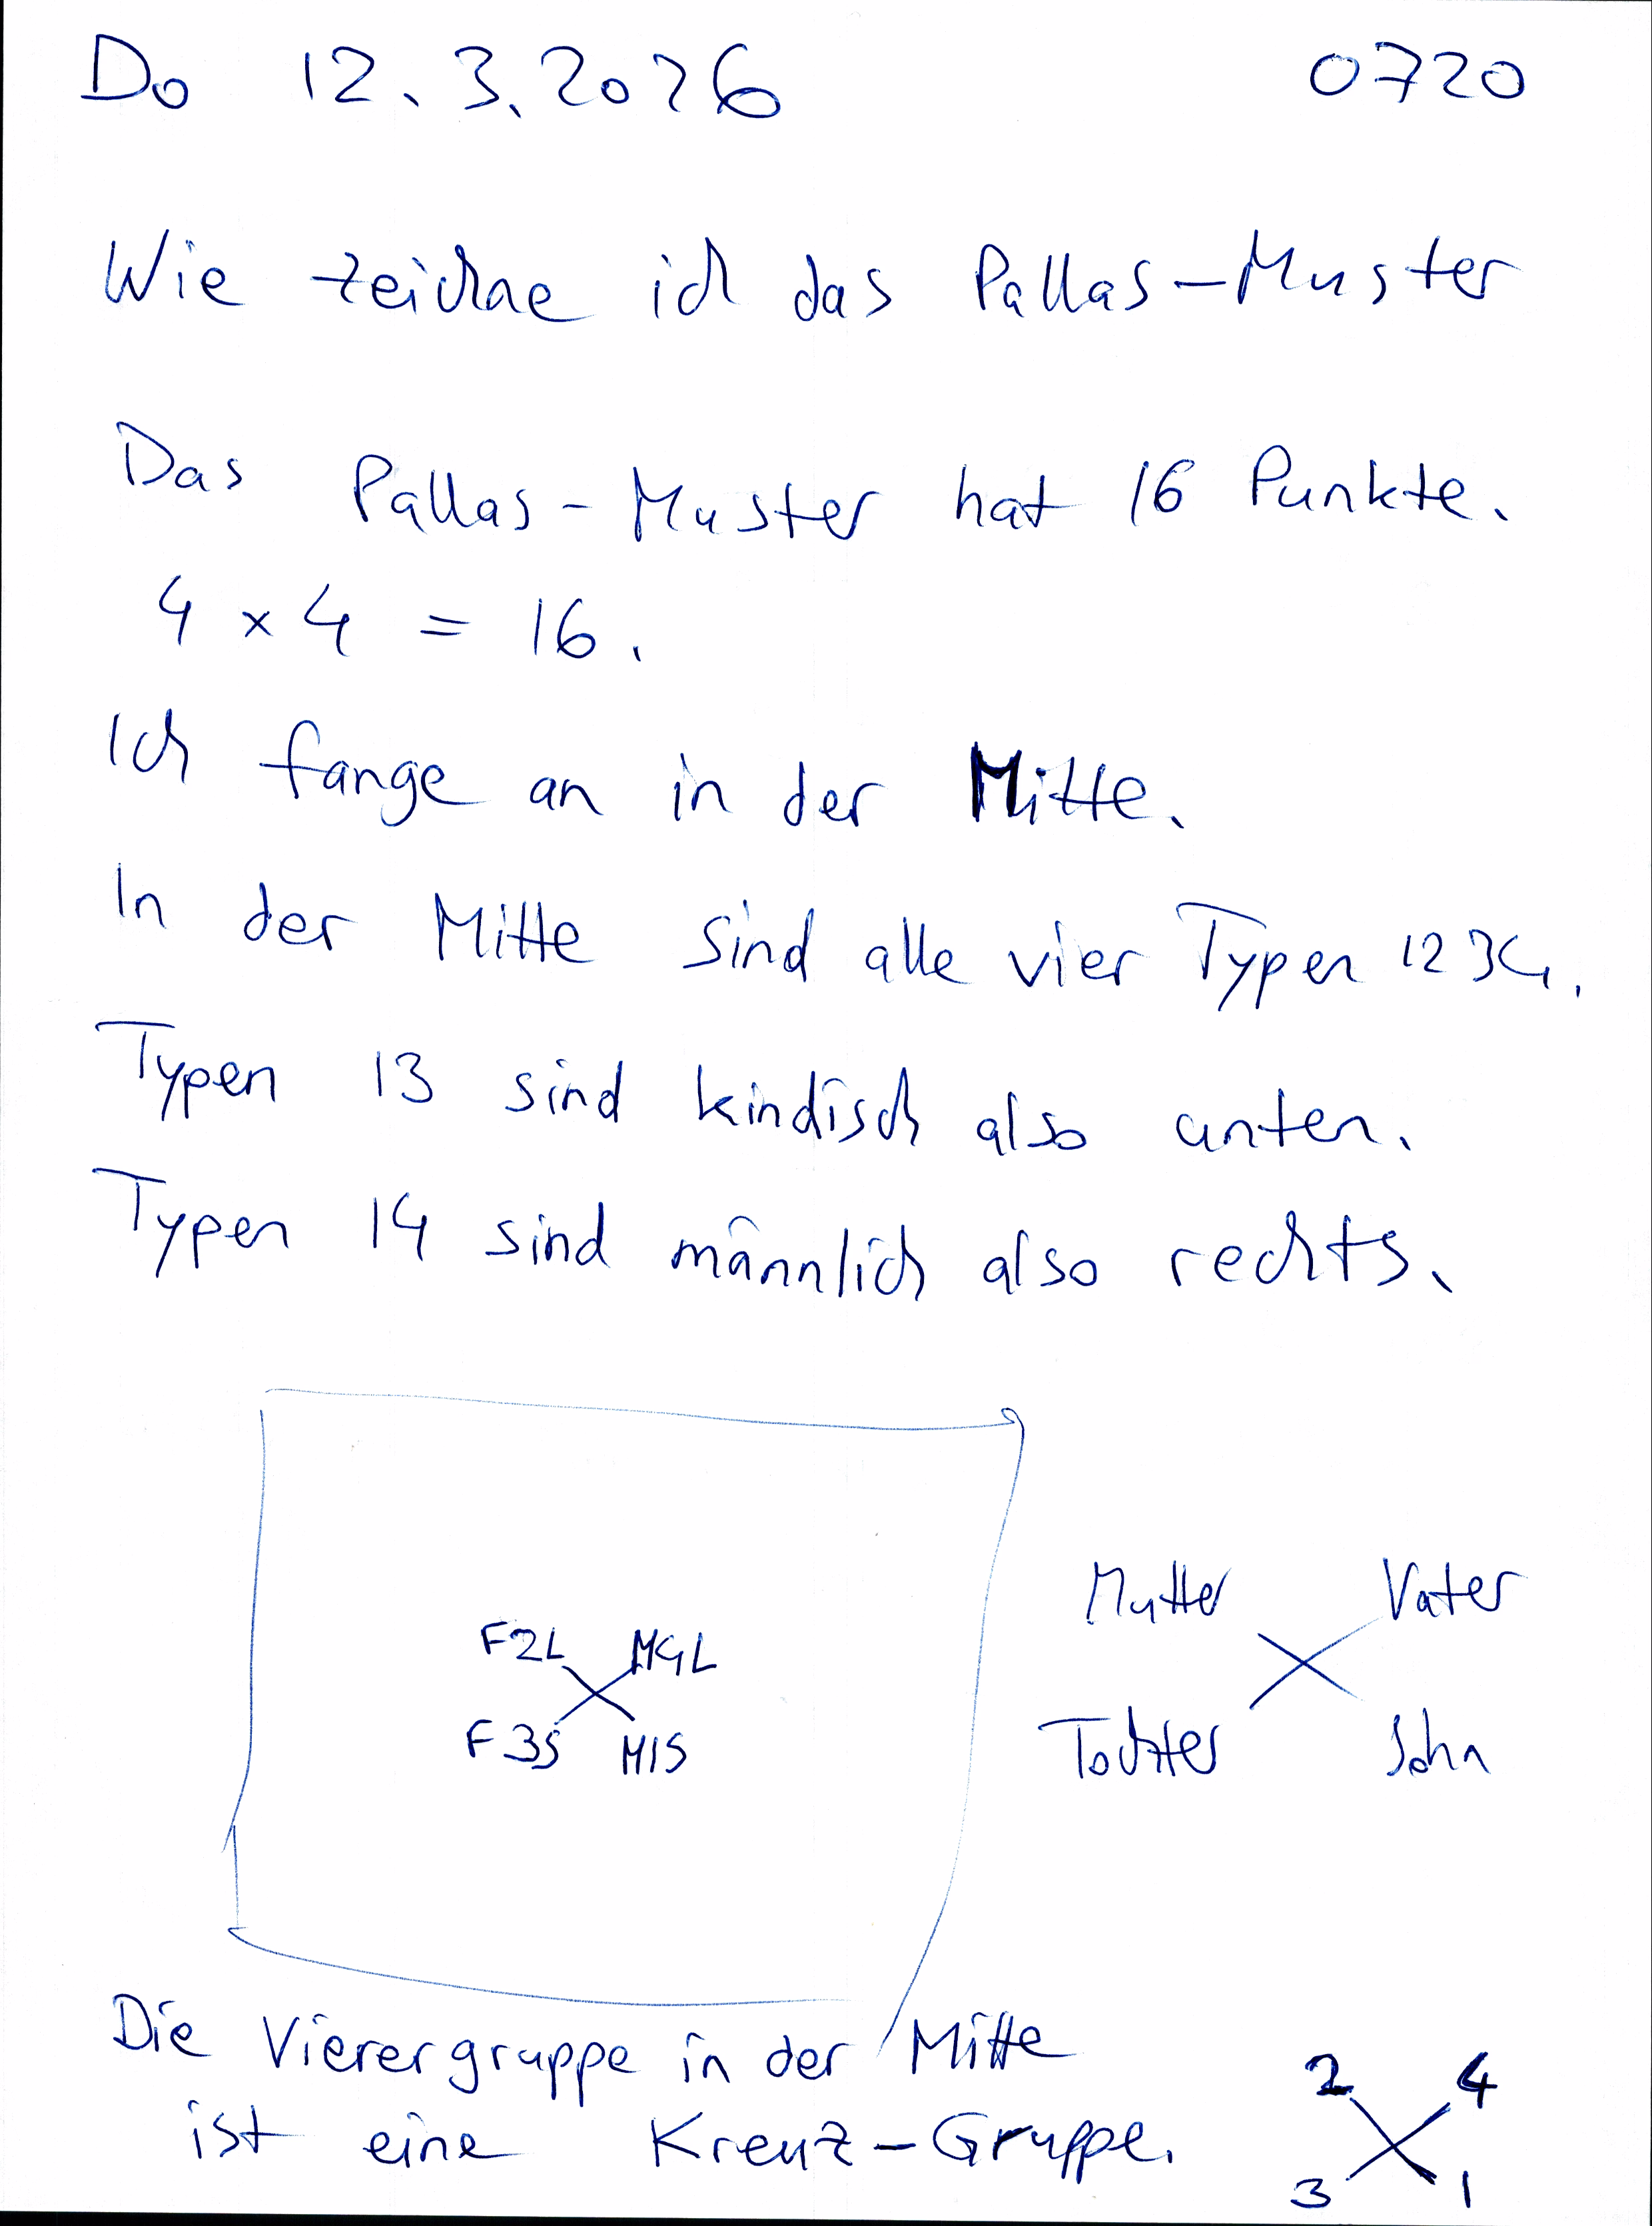 Do 12.3.2026 0720
Wie zeichne ich das Pallas-Muster
Das Pallas-Muster hat 16 Punkte.
4 x 4 = 16.
Ich fange an in der Mitte.
In der Mitte sind alle vier Typen 1234.
Typen 13 sind kindisch also unten.
Typen 14 sind männlich also rechts.
Mutter Vater
F2L M4L
F3S M1S
Tochter Sohn
Die Vierergruppe in der Mitte
ist eine Kreuz-Gruppe.
2 4
3 1